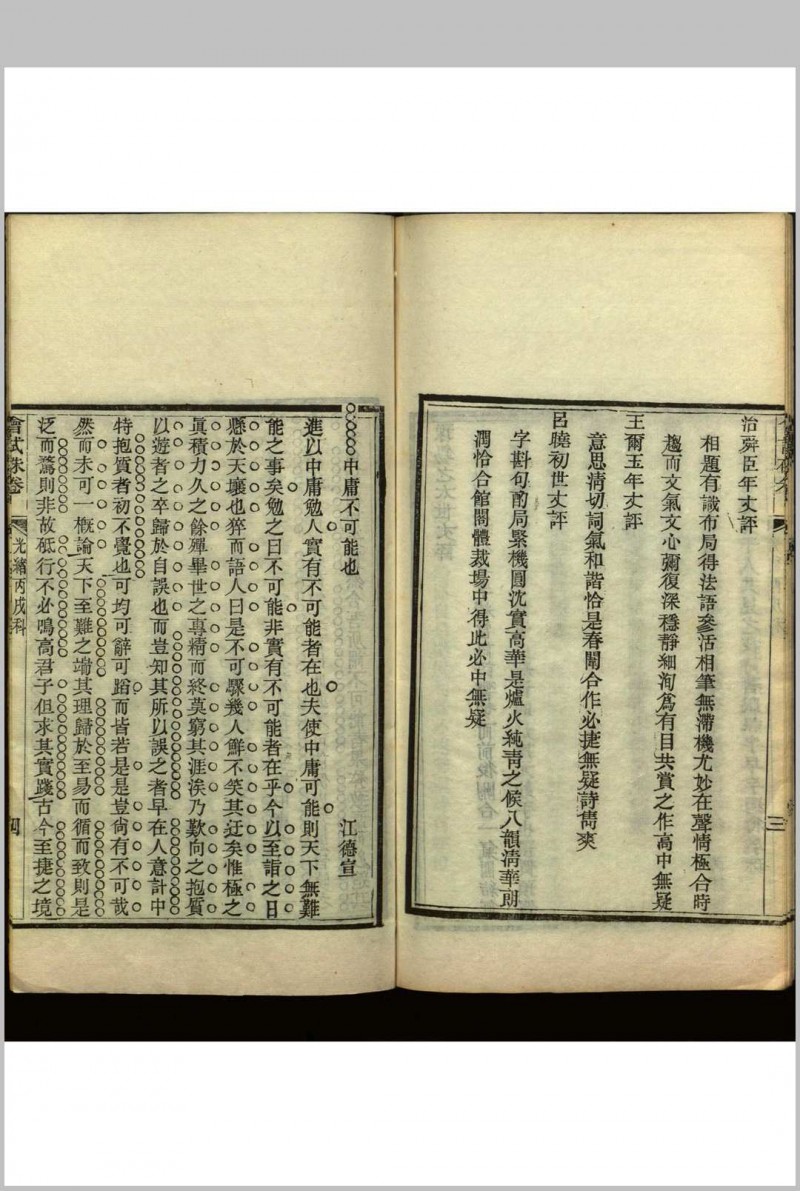 治舜臣年丈評
相題有識布局得法語參活相筆無滯機尤妙在聲情極合時
趨而文氣文心彌復深穩靜細洵爲有目共賞之作高中無疑
王爾玉年丈評
意思清切詞氣和諧恰是春闈合作必捷無疑詩雋爽
呂曉初世丈評
字斟句酌局緊機圓沈實高華是爐火純青之候八韻淸華朗
潤恰合館閣體裁場中得此必中無疑
三
中庸不可能也
江德宣
進以中庸勉人實有不可能者在也夫使中庸可能則天下無難
能之事矣勉之曰不可能非實有不可能者在乎今以至詣之日
懸於天壤也猝而語人曰是不可驟幾人鮮不笑其迂矣惟極之
眞積力久之餘殫畢世之專精而終莫窮其涯涘乃歎向之抱質
以遊者之卒歸於自誤也而豈知其所以誤之者早在人意計中
特抱質者初不覺也可均可辭可蹈而皆若是是豈尙有不可哉
然而未可一槪論天下至難之端其理歸於至易而循而致則是
泛而騖則非故砥行不必鳴高君子但求其實踐古今至捷之境
會試硃卷
光緖丙戌科
四